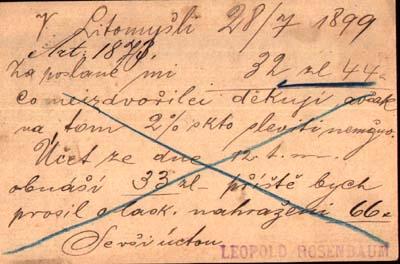 V Litomyšli 28/7 1899
Art. 1878.
Za poslané mi 32 zl 44
co nejzdvořileji děkuji avšak
na tom 2% skto sleviti nemohu.
Účet ze dne 12 t. m.
obnáší 33 zl — příště bych
prosil o lask. nahražení 66
Se vší úctou
LEOPOLD ROSENBAUM